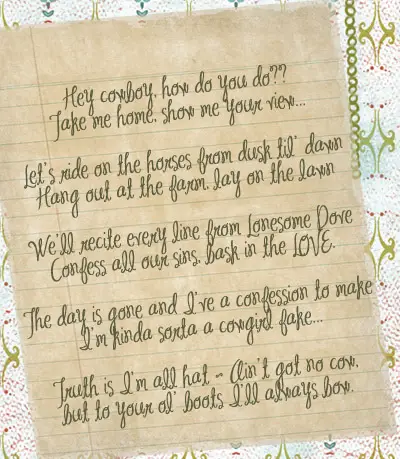 Hey cowboy, how do you do??
Take me home, show me your view...
Let's ride on the horses from dusk til' dawn
Hang out at the farm, lay on the lawn
We'll recite every line from Lonesome Dove
Confess all our sins, bask in the LOVE.
The day is gone and I've a confession to make
I'm kinda sorta a cowgirl fake...
Truth is I'm all hat - Ain't got no cow,
but to your ol' boots I'll always bow.